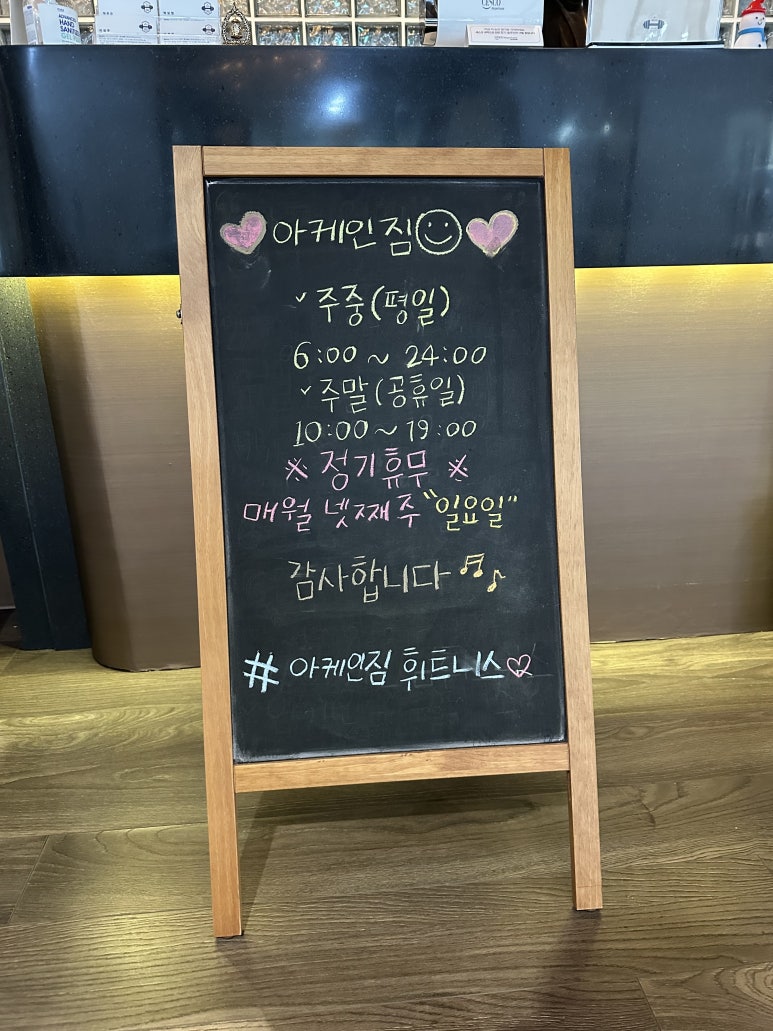 아케인짐
✓주중(평일)
6:00~24:00
✓주말(공휴일)
10:00~19:00
※정기휴무※
매월 넷째주 "일요일"
감사합니다
# 아케인짐 휘트니스